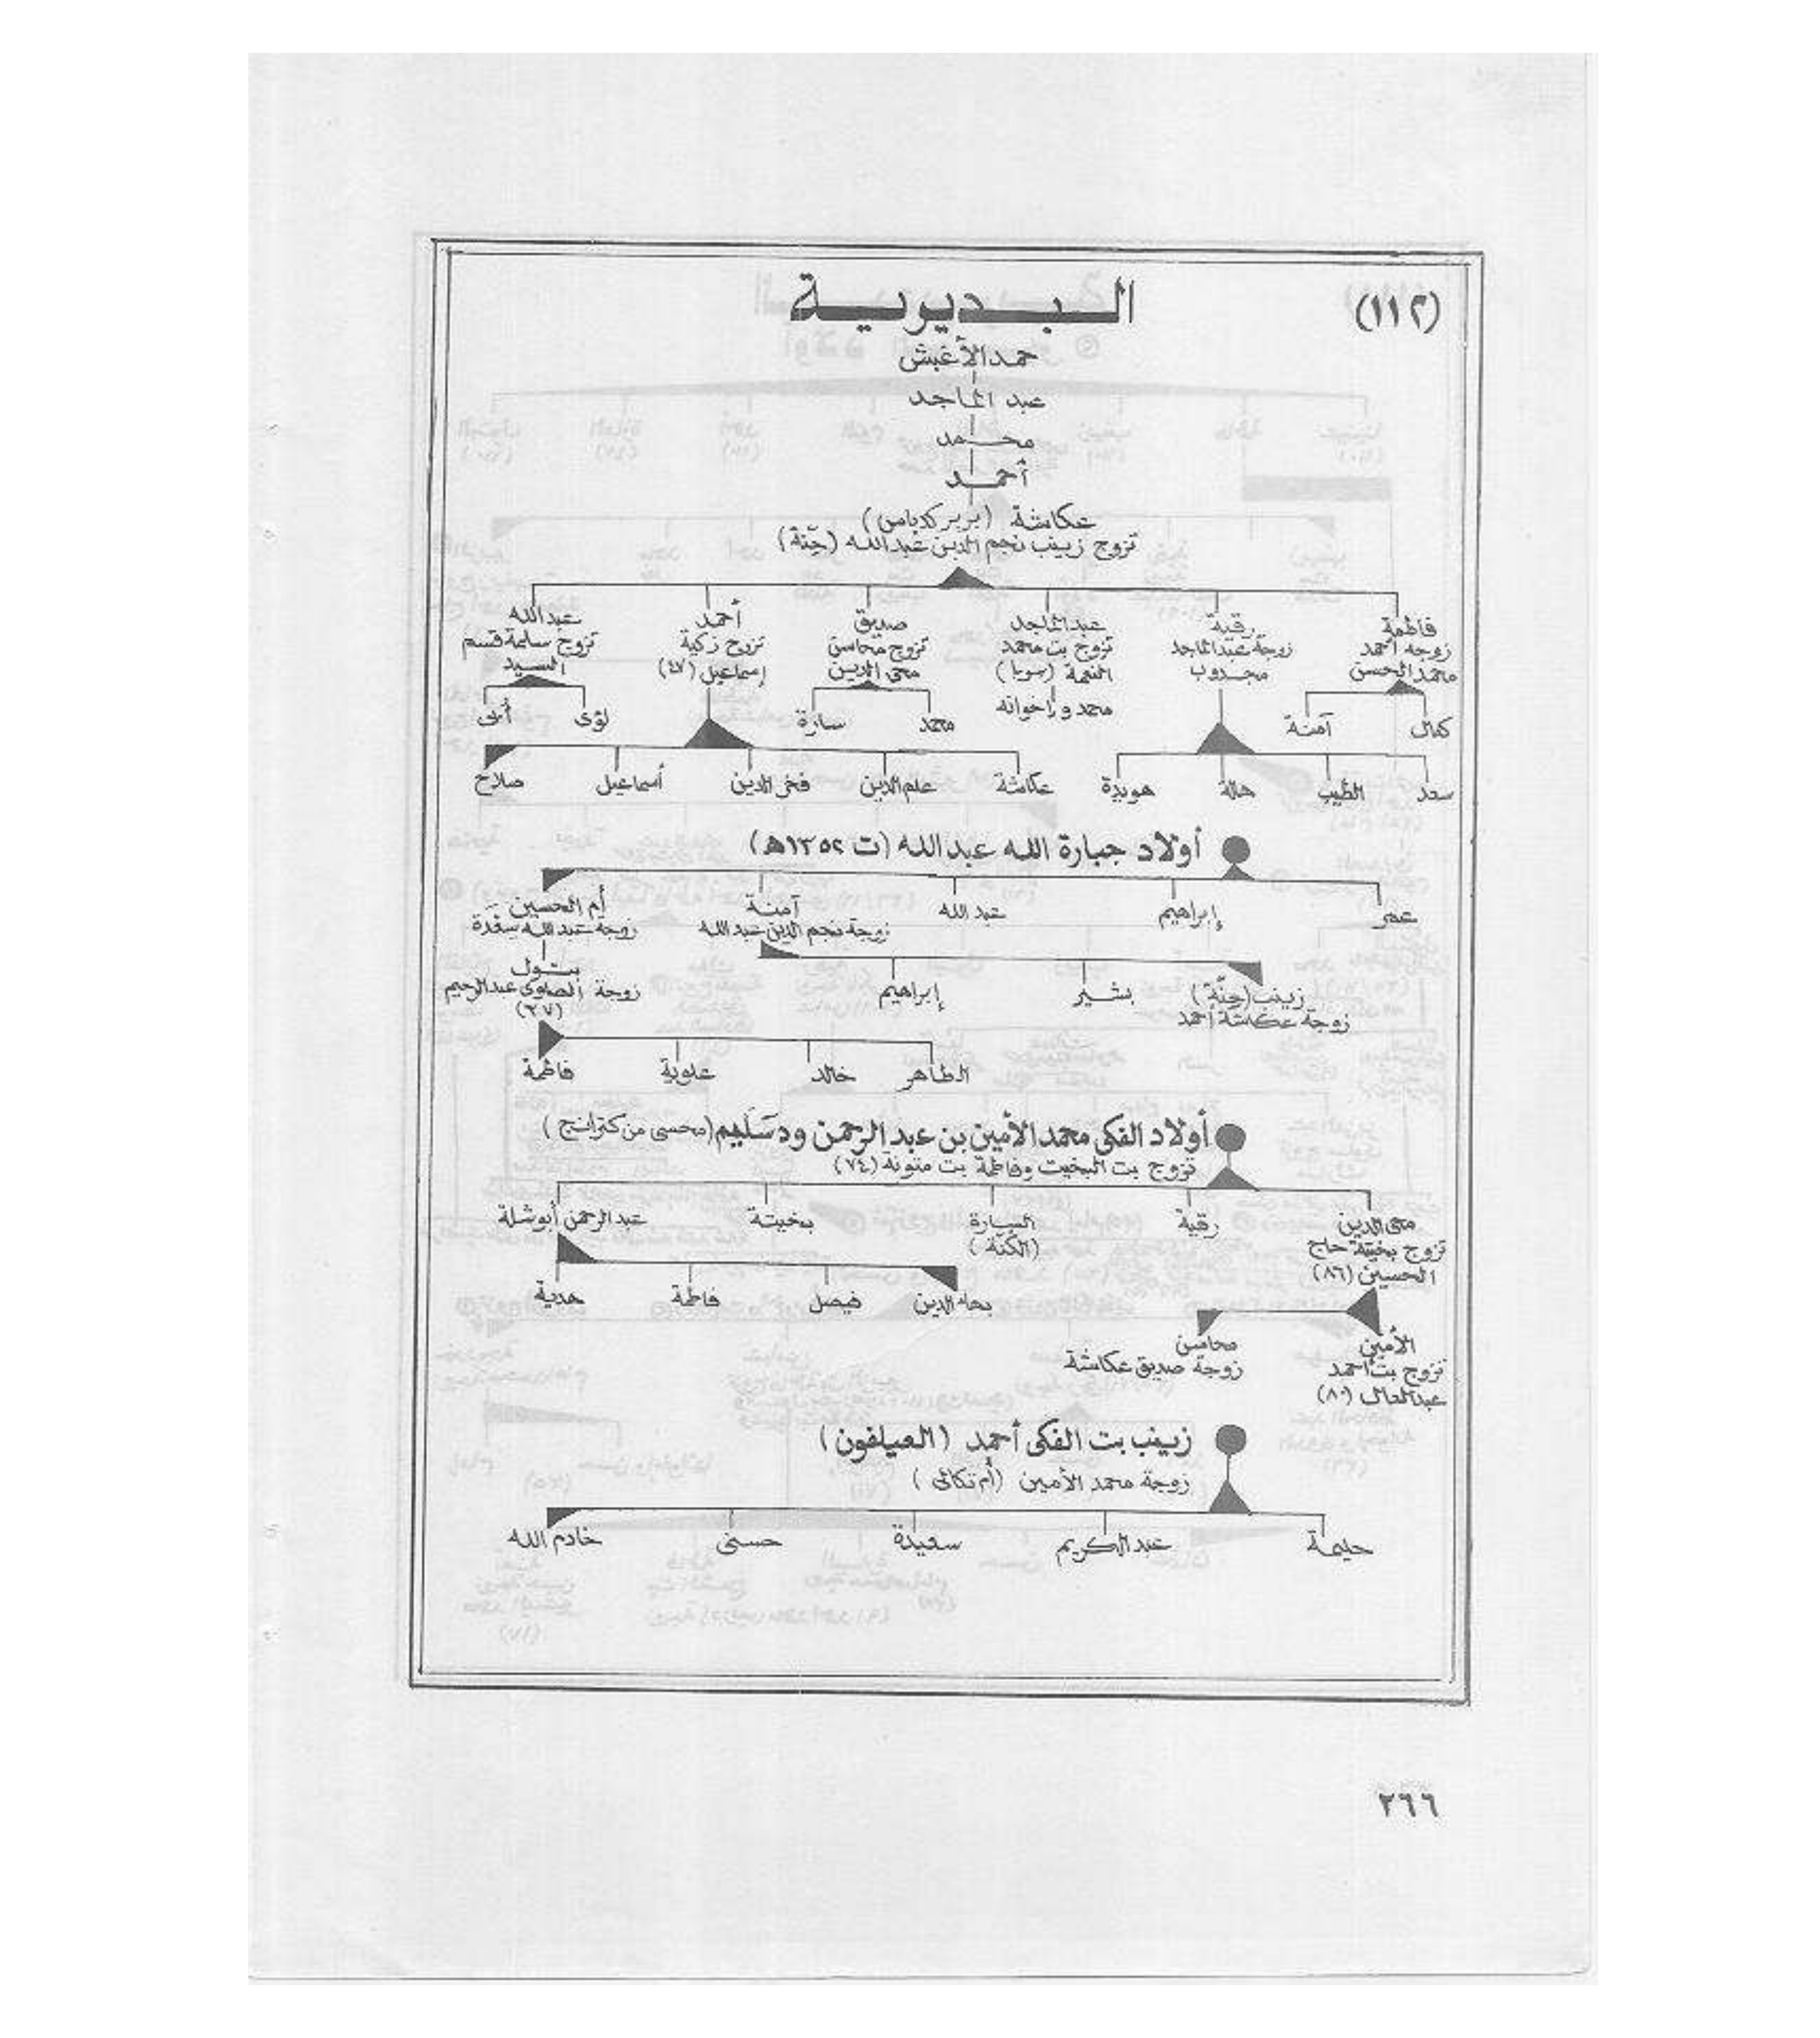 (١١٢)
البديرية
حمد الأغبش
عبد الماجد
محمد
أحمد
عكاشة (بربر كدباس)
تزوج زينب نجم الدين عبد الله (جنّة)
فاطمة
زوجه أحمد
محمد الحسن
رقية
زوجة عبد الماجد
مجدوب
عبد الماجد
تزوج بت محمد
النعمة (سوبا)
محمد وإخوانه
صديق
تزوج محاسن
محى الدين
أحمد
تزوج زكية
إسماعيل (٤٧)
عبد الله
تزوج سلمة قسم
السيد
كمال آمنة
محمد سارة
لؤى أبى
سعد الطيب هالة هويدة
عكاشة علم الدين فخر الدين أسماعيل صلاح
أولاد جبارة الله عبد الله (ت ١٣٥٢ه)
عمر إبراهيم عبد الله
آمنة
زوجة نجم الدين عبد الله
أم الحسين
زوجة عبد الله سِقدة
زينب (جِنّة)
زوجة عكاشة أحمد
بشير إبراهيم
بتول
زوجة الصاوى عبد الرحيم
(٢٧)
الطاهر خالد علوية فاطمة
أولاد الفكى محمد الأمين بن عبد الرحمن ود سَليم (محسى من كترانج)
تزوج بت البخيت وفاطمة بت منونة (٧٤)
محى الدين
تزوج بخيتة حاج
الحسين (٨٦)
رقية
السارة
(الكُنّة)
بخيتة
عبد الرحمن أبوشلة
بهاء الدين فيصل فاطمة هدية
الأمين
تزوج بت أحمد
عبد العال (٨٠)
محاسن
زوجة صديق عكاشة
زينب بت الفكى أحمد (العيلفون)
زوجة محمد الأمين (أم تكالى)
حليمة عبد الكريم سعيدة حسنى خادم الله
٢٦٦